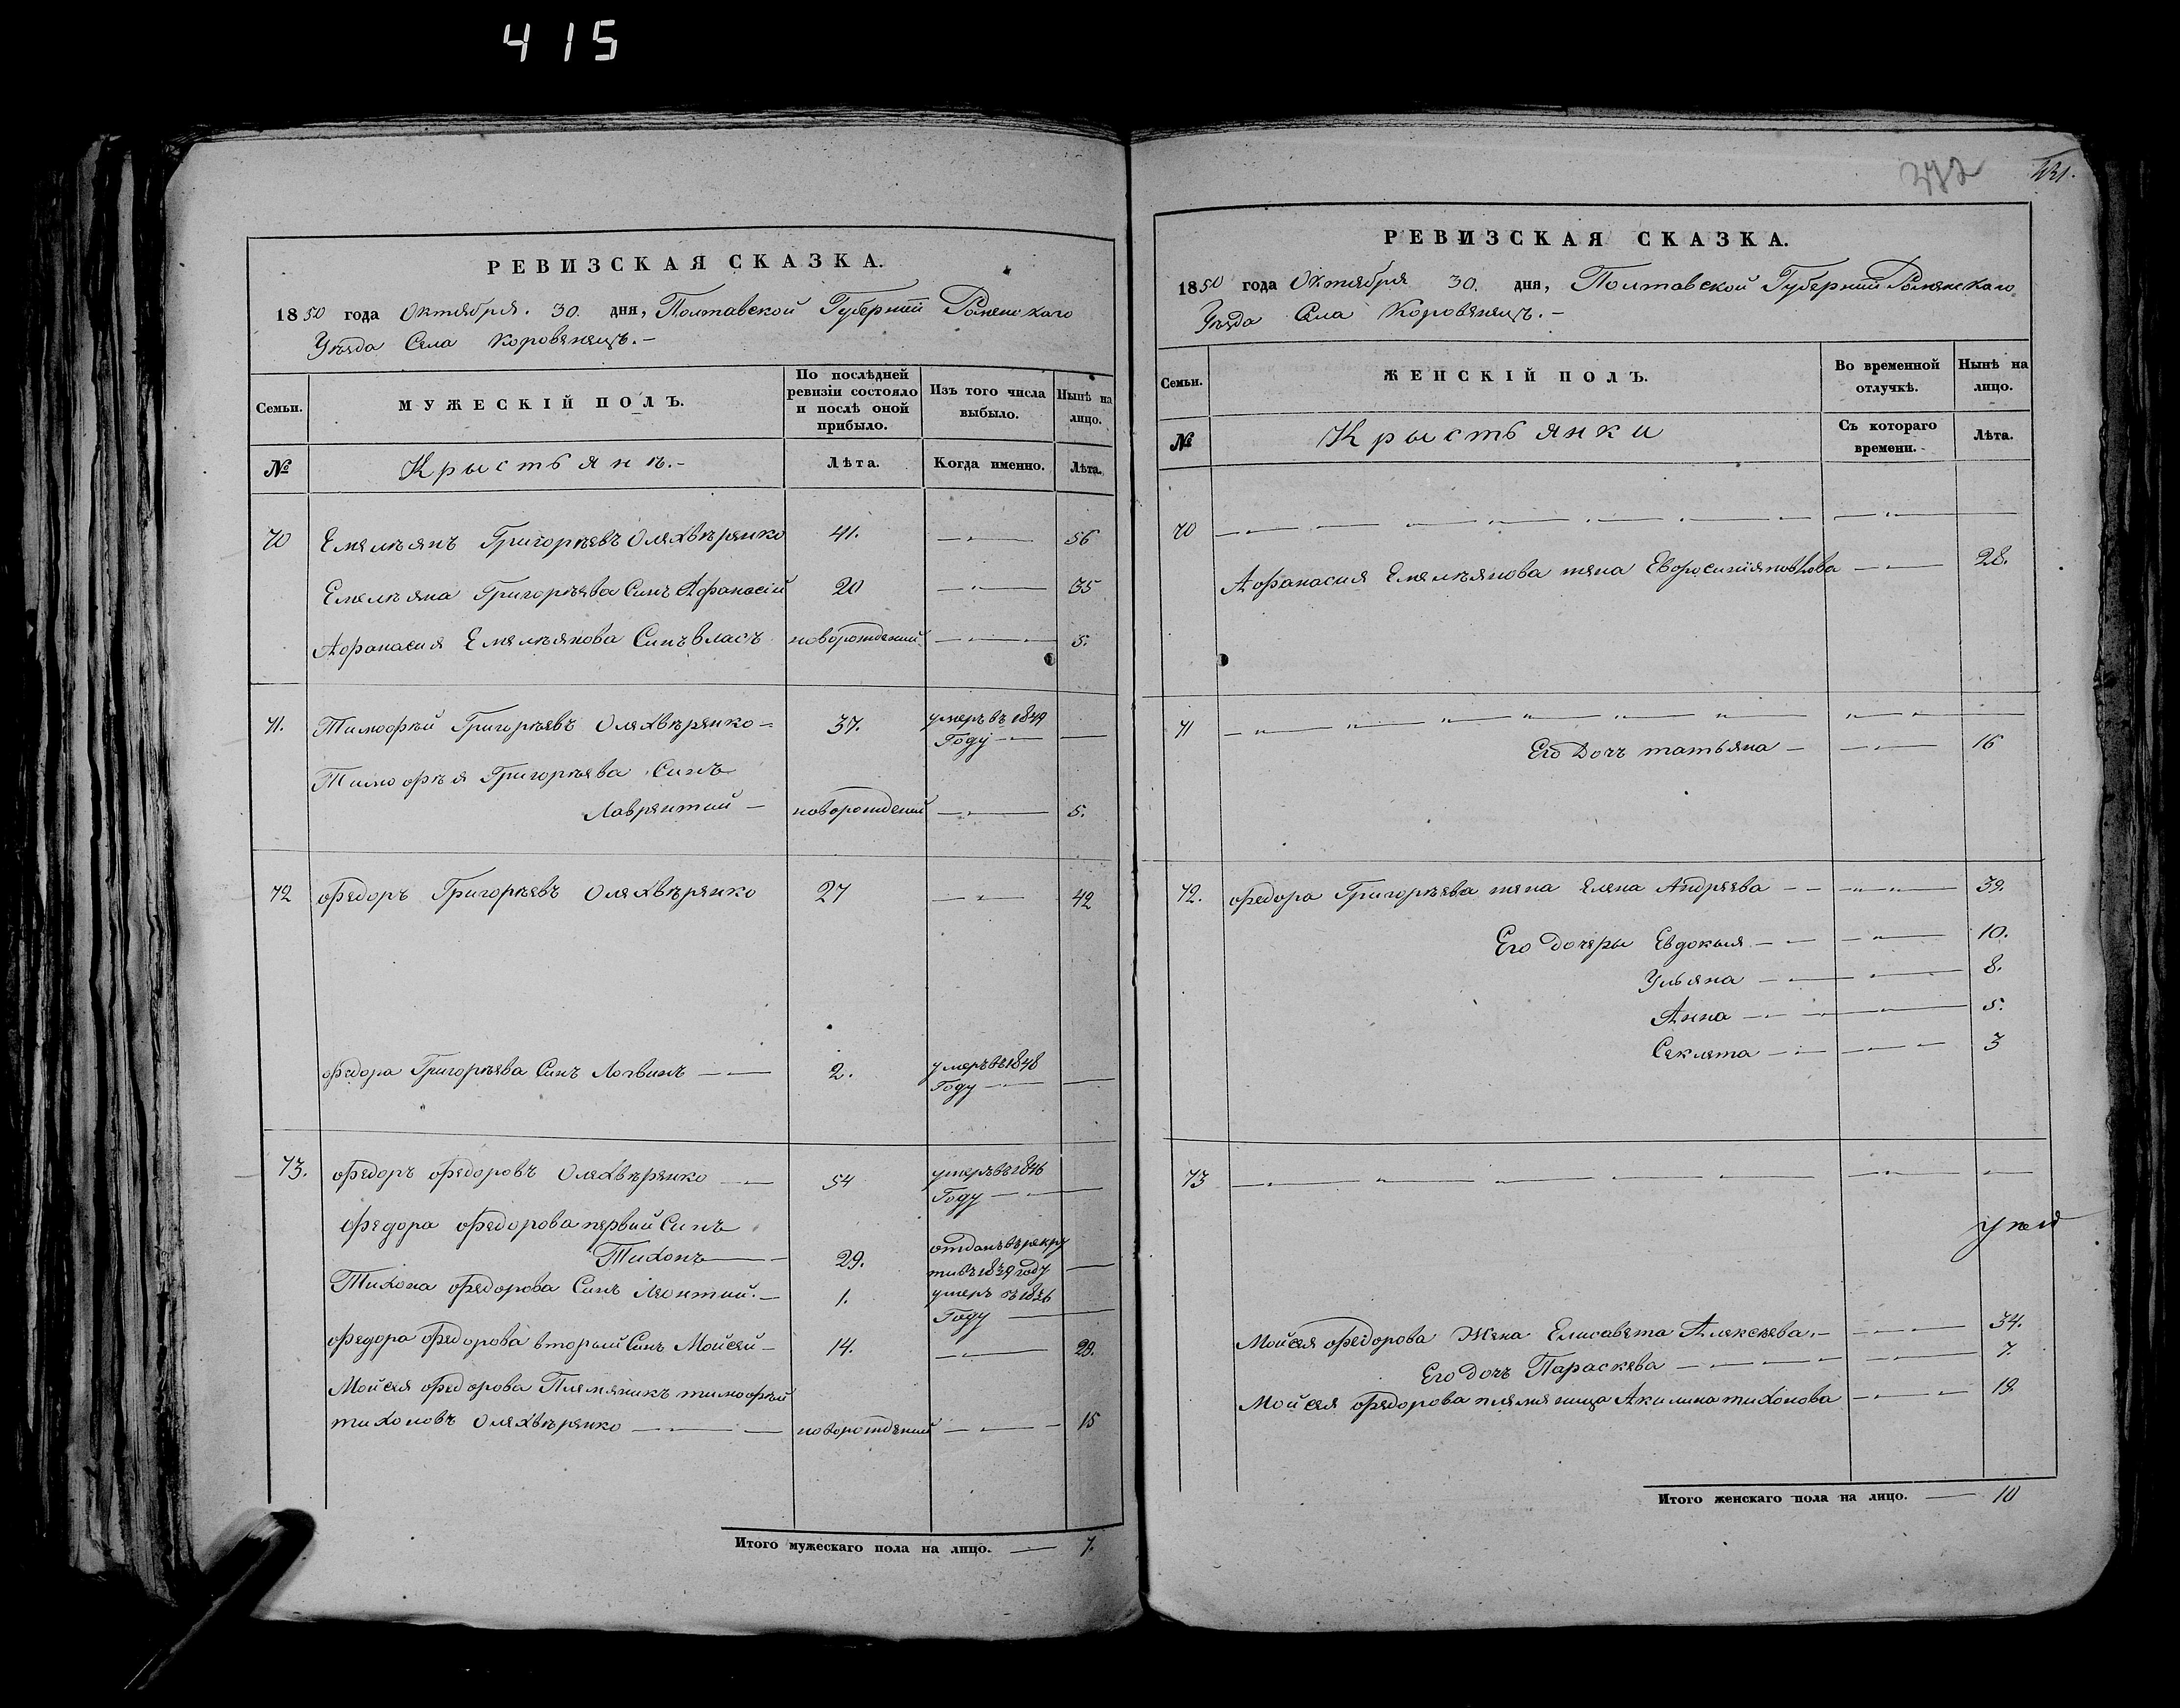 415
РЕВИЗСКАЯ СКАЗКА.
1850 года Октября. 30. дня, Полтавской Губерніи Роменскаго
Уѣзда Села Коровинецъ.-
Семьи.
МУЖЕСКІЙ ПОЛЪ.
По послѣдней ревизіи состояло и послѣ оной прибыло.
Изъ того числа выбыло.
Нынѣ на лицо.
№
Крыстьянъ.-
Лѣта.
Когда именно.
Лѣта.
70 Емельянъ Григорьевъ Олехвѣренко 41. 56
Емельяна Григорьева Синъ Афанасій 20 35
Афанасия Емельянова Синъ Власъ новорождений 5.
71. Тимофѣй Григорьевъ Олехвѣренко 37. умеръ въ 1849
Году
Тимофѣя Григорьева Синъ
Лаврентий новорожденний 5.
72 Федоръ Григорьевъ Олехвѣренко 27 42
Федора Григорьева Синъ Логвинъ 2. умеръ въ 1848
Году
73. Федоръ Федоровъ Олехвѣренко 54 умеръ въ 1846
Году
Федора Федорова первий Синъ
Тихонъ 29. отданъ въ рекру
ти въ 1839 году
Тихона Федорова Синъ Леонтий. 1. умеръ въ 1836
Году
Федора Федорова вторый Синъ Мойсей 14. 29.
Мойсея Федорова Племяникъ тимофѣй
тихоновъ Олехвѣренко новорожденний 15
Итого мужескаго пола на лицо. 7.
372
РЕВИЗСКАЯ СКАЗКА.
1850 года Октября 30. дня, Полтавской Губерніи Роменскаго
Уѣзда Села Коровинецъ.-
Семьи.
ЖЕНСКІЙ ПОЛЪ.
Во временной отлучкѣ.
Нынѣ на лицо.
№
Крыстьянки
Съ котораго времени.
Лѣта.
70
Афанасия Емельянова жена 28.
71
Его Дочъ татьяна 16
72. Федора Григорьева жена Елена Андреева 39.
Его дочеры Евдокия 10.
Ульяна 8.
Анна 5.
Секлета 3
73
Мойсея Федорова Жена Елисавета Алексѣева. 34.
Его дочъ Параскева 7.
Мойсея Федорова племяница Акилина тихонова 19.
Итого женскаго пола на лицо. 10